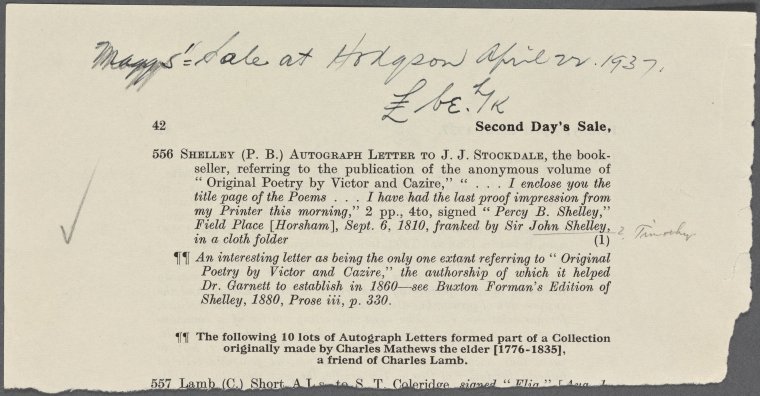 Sale at Hodgson April 22. 1937.
£
42 Second Day's Sale,
556 SHELLEY (P. B.) AUTOGRAPH LETTER TO J. J. STOCKDALE, the book-
seller, referring to the publication of the anonymous volume of
“ Original Poetry by Victor and Cazire,” “ . . . I enclose you the
title page of the Poems . . . I have had the last proof impression from
my Printer this morning,” 2 pp., 4to, signed “ Percy B. Shelley,”
Field Place [Horsham], Sept. 6, 1810, franked by Sir John Shelley, ? Timothy
in a cloth folder (1)
¶¶ An interesting letter as being the only one extant referring to “ Original
Poetry by Victor and Cazire,” the authorship of which it helped
Dr. Garnett to establish in 1860—see Buxton Forman's Edition of
Shelley, 1880, Prose iii, p. 330.
¶¶ The following 10 lots of Autograph Letters formed part of a Collection
originally made by Charles Mathews the elder [1776-1835],
a friend of Charles Lamb.
557 Lamb (C.) Short A.L.s. to S. T. Coleridge, signed “ Elia,” [Aug. 1,